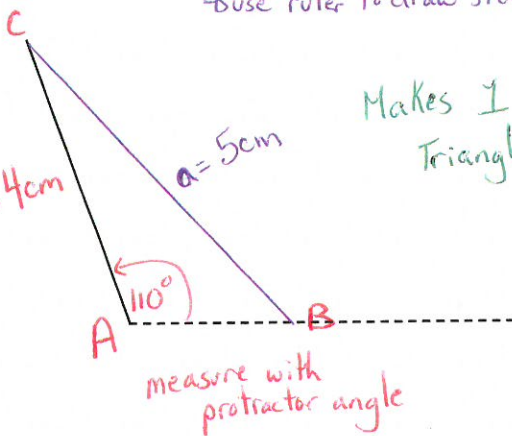 use ruler to draw
C
Makes 1
a=5cm
4cm
110°
A
B
measure with
protractor angle